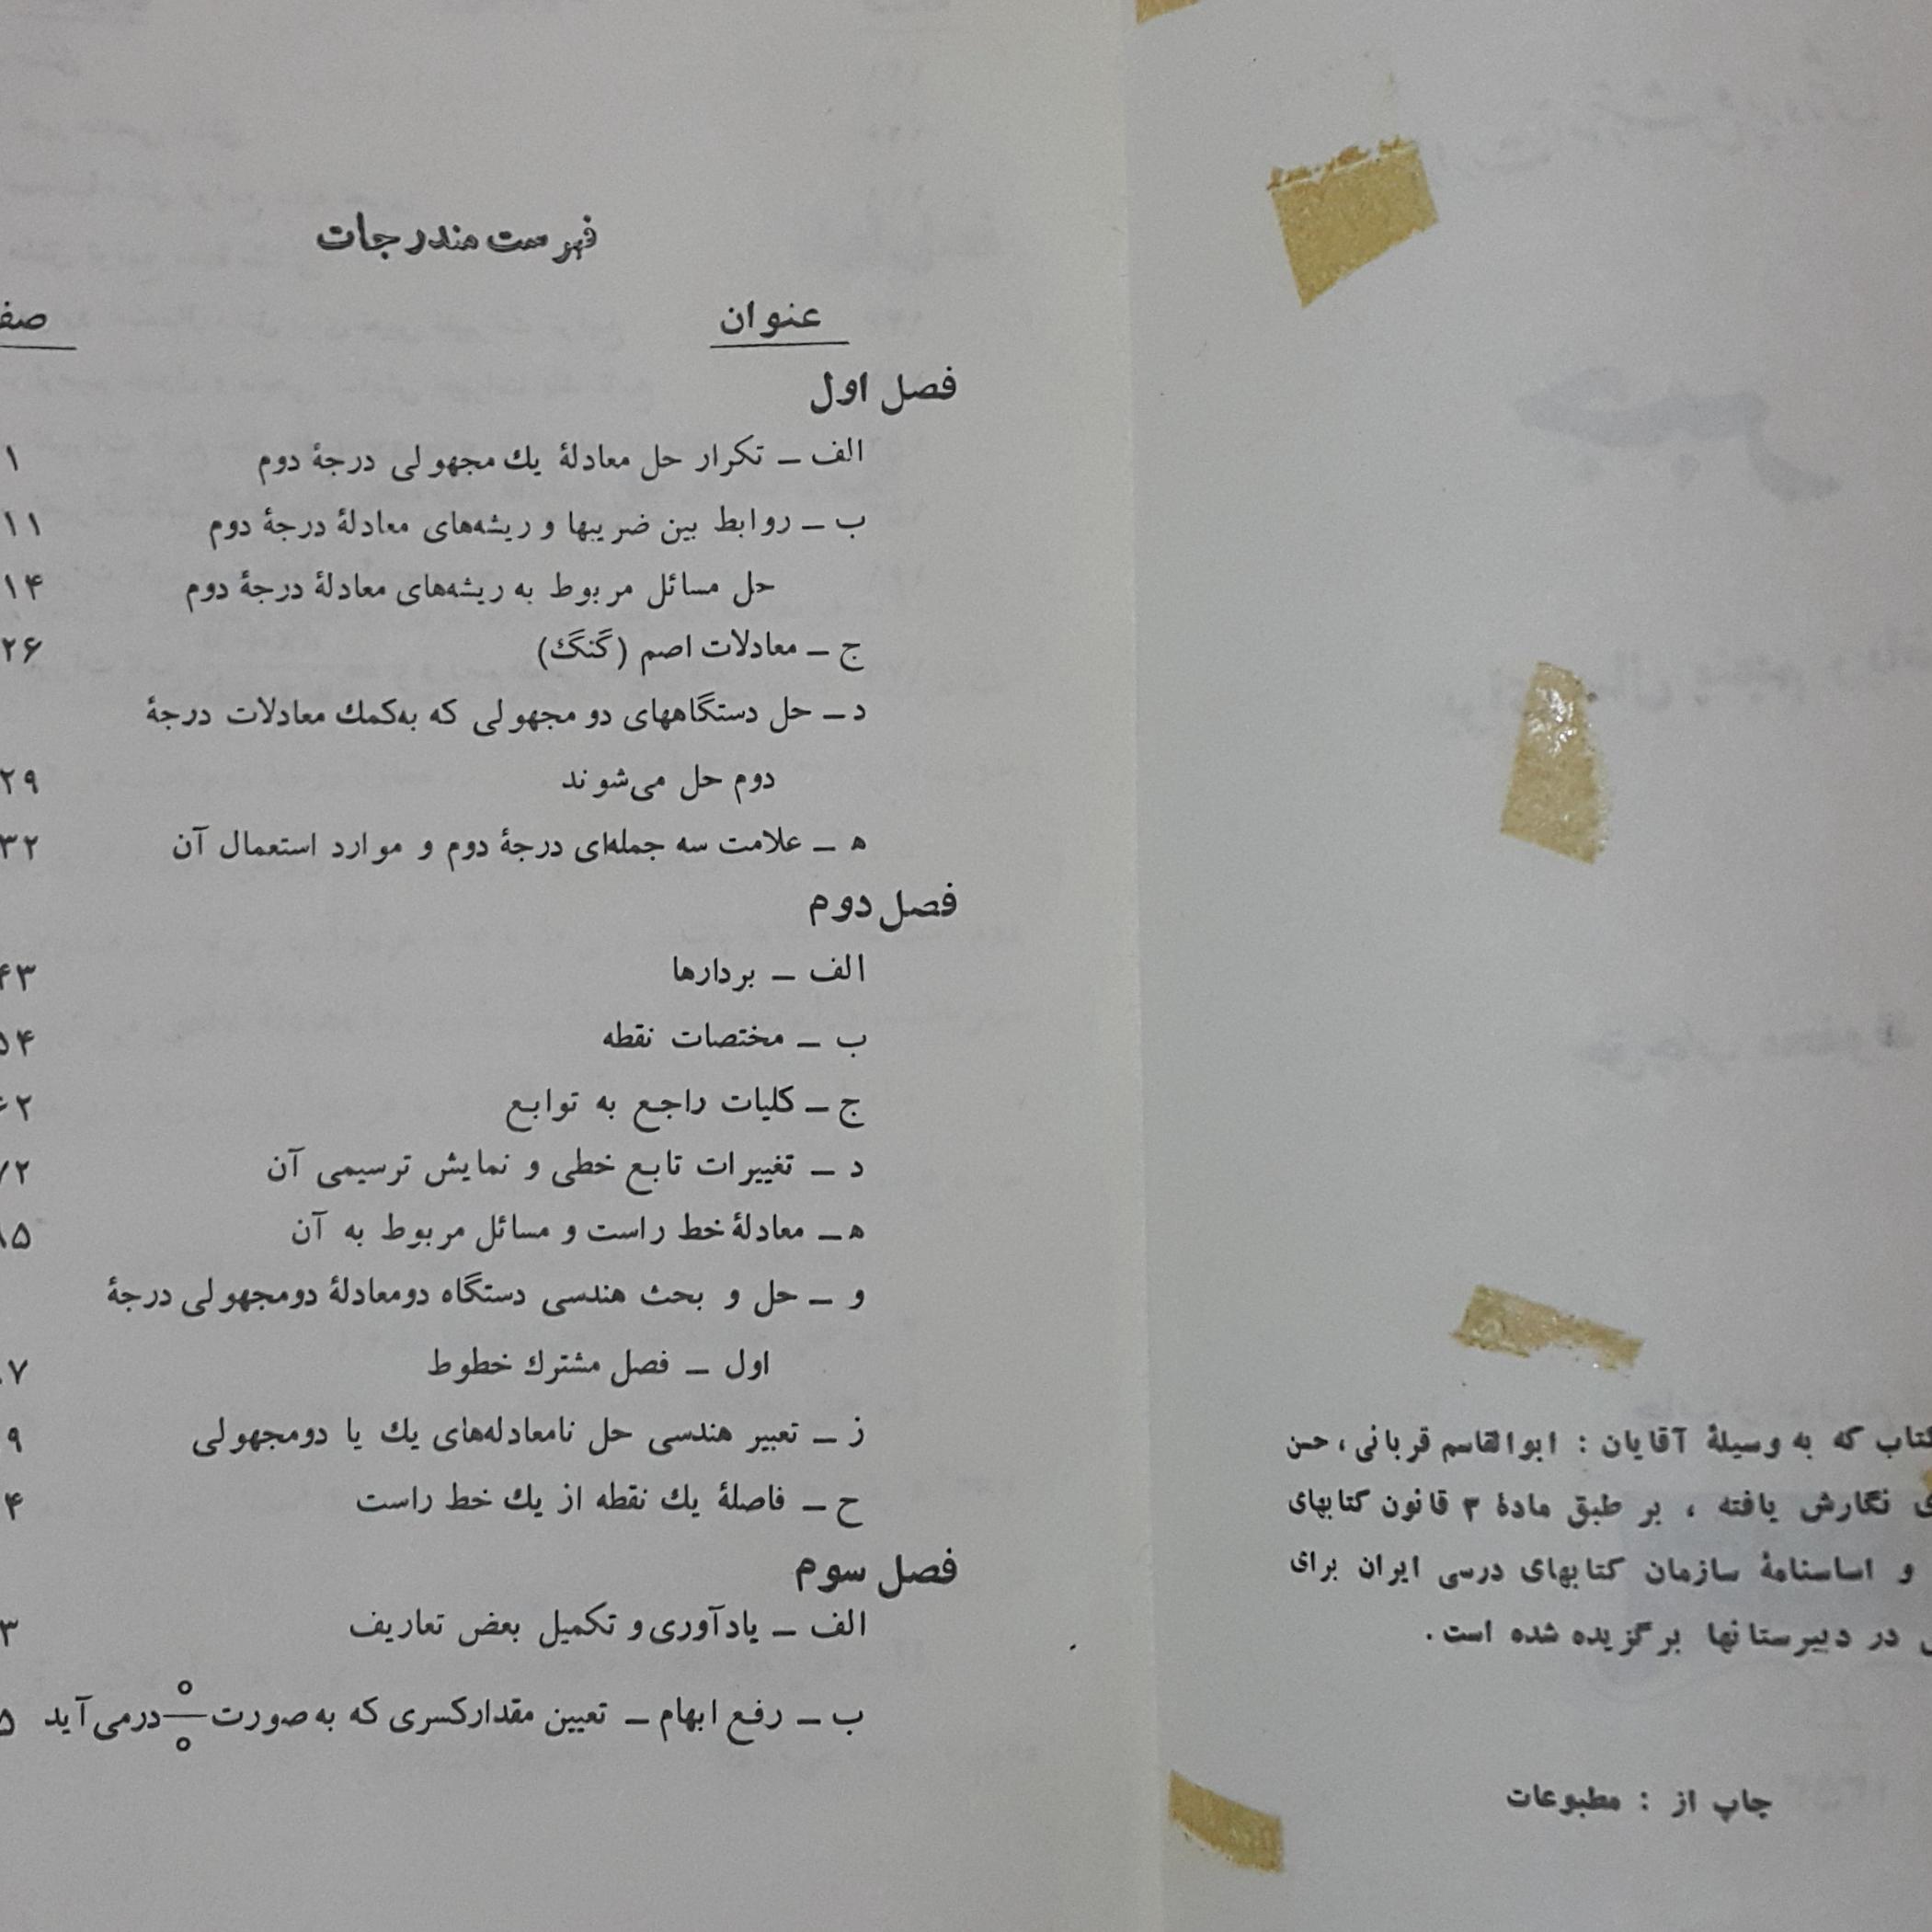 کتاب که به وسیلهٔ آقایان : ابوالقاسم قربانی ، حسن
نگارش یافته ، بر طبق مادهٔ ۳ قانون کتابهای
و اساسنامهٔ سازمان کتابهای درسی ایران برای
در دبیرستانها برگزیده شده است .
چاپ از : مطبوعات
فهرست مندرجات
عنوان
فصل اول
الف ــ تکرار حل معادلهٔ یك مجهولی درجهٔ دوم ۱
ب ــ روابط بین ضریبها و ریشه‌های معادلهٔ درجهٔ دوم ۱۱
حل مسائل مربوط به ریشه‌های معادلهٔ درجهٔ دوم ۱۴
ج ــ معادلات اصم (گنگ) ۲۶
د ــ حل دستگاههای دو مجهولی که به‌کمك معادلات درجهٔ
دوم حل می‌شوند ۲۹
ه ــ علامت سه جمله‌ای درجهٔ دوم و موارد استعمال آن ۳۲
فصل دوم
الف ــ بردارها ۴۳
ب ــ مختصات نقطه ۵۴
ج ــ کلیات راجع به توابع ۶۲
د ــ تغییرات تابع خطی و نمایش ترسیمی آن ۷۲
ه ــ معادلهٔ خط راست و مسائل مربوط به آن
و ــ حل و بحث هندسی دستگاه دومعادلهٔ دومجهولی درجهٔ
اول ــ فصل مشترك خطوط
ز ــ تعبیر هندسی حل نامعادله‌های یك یا دومجهولی
ح ــ فاصلهٔ یك نقطه از یك خط راست
فصل سوم
الف ــ یادآوری و تکمیل بعض تعاریف
ب ــ رفع ابهام ــ تعیین مقدارکسری که به صورت ۰/۰ درمی‌آید